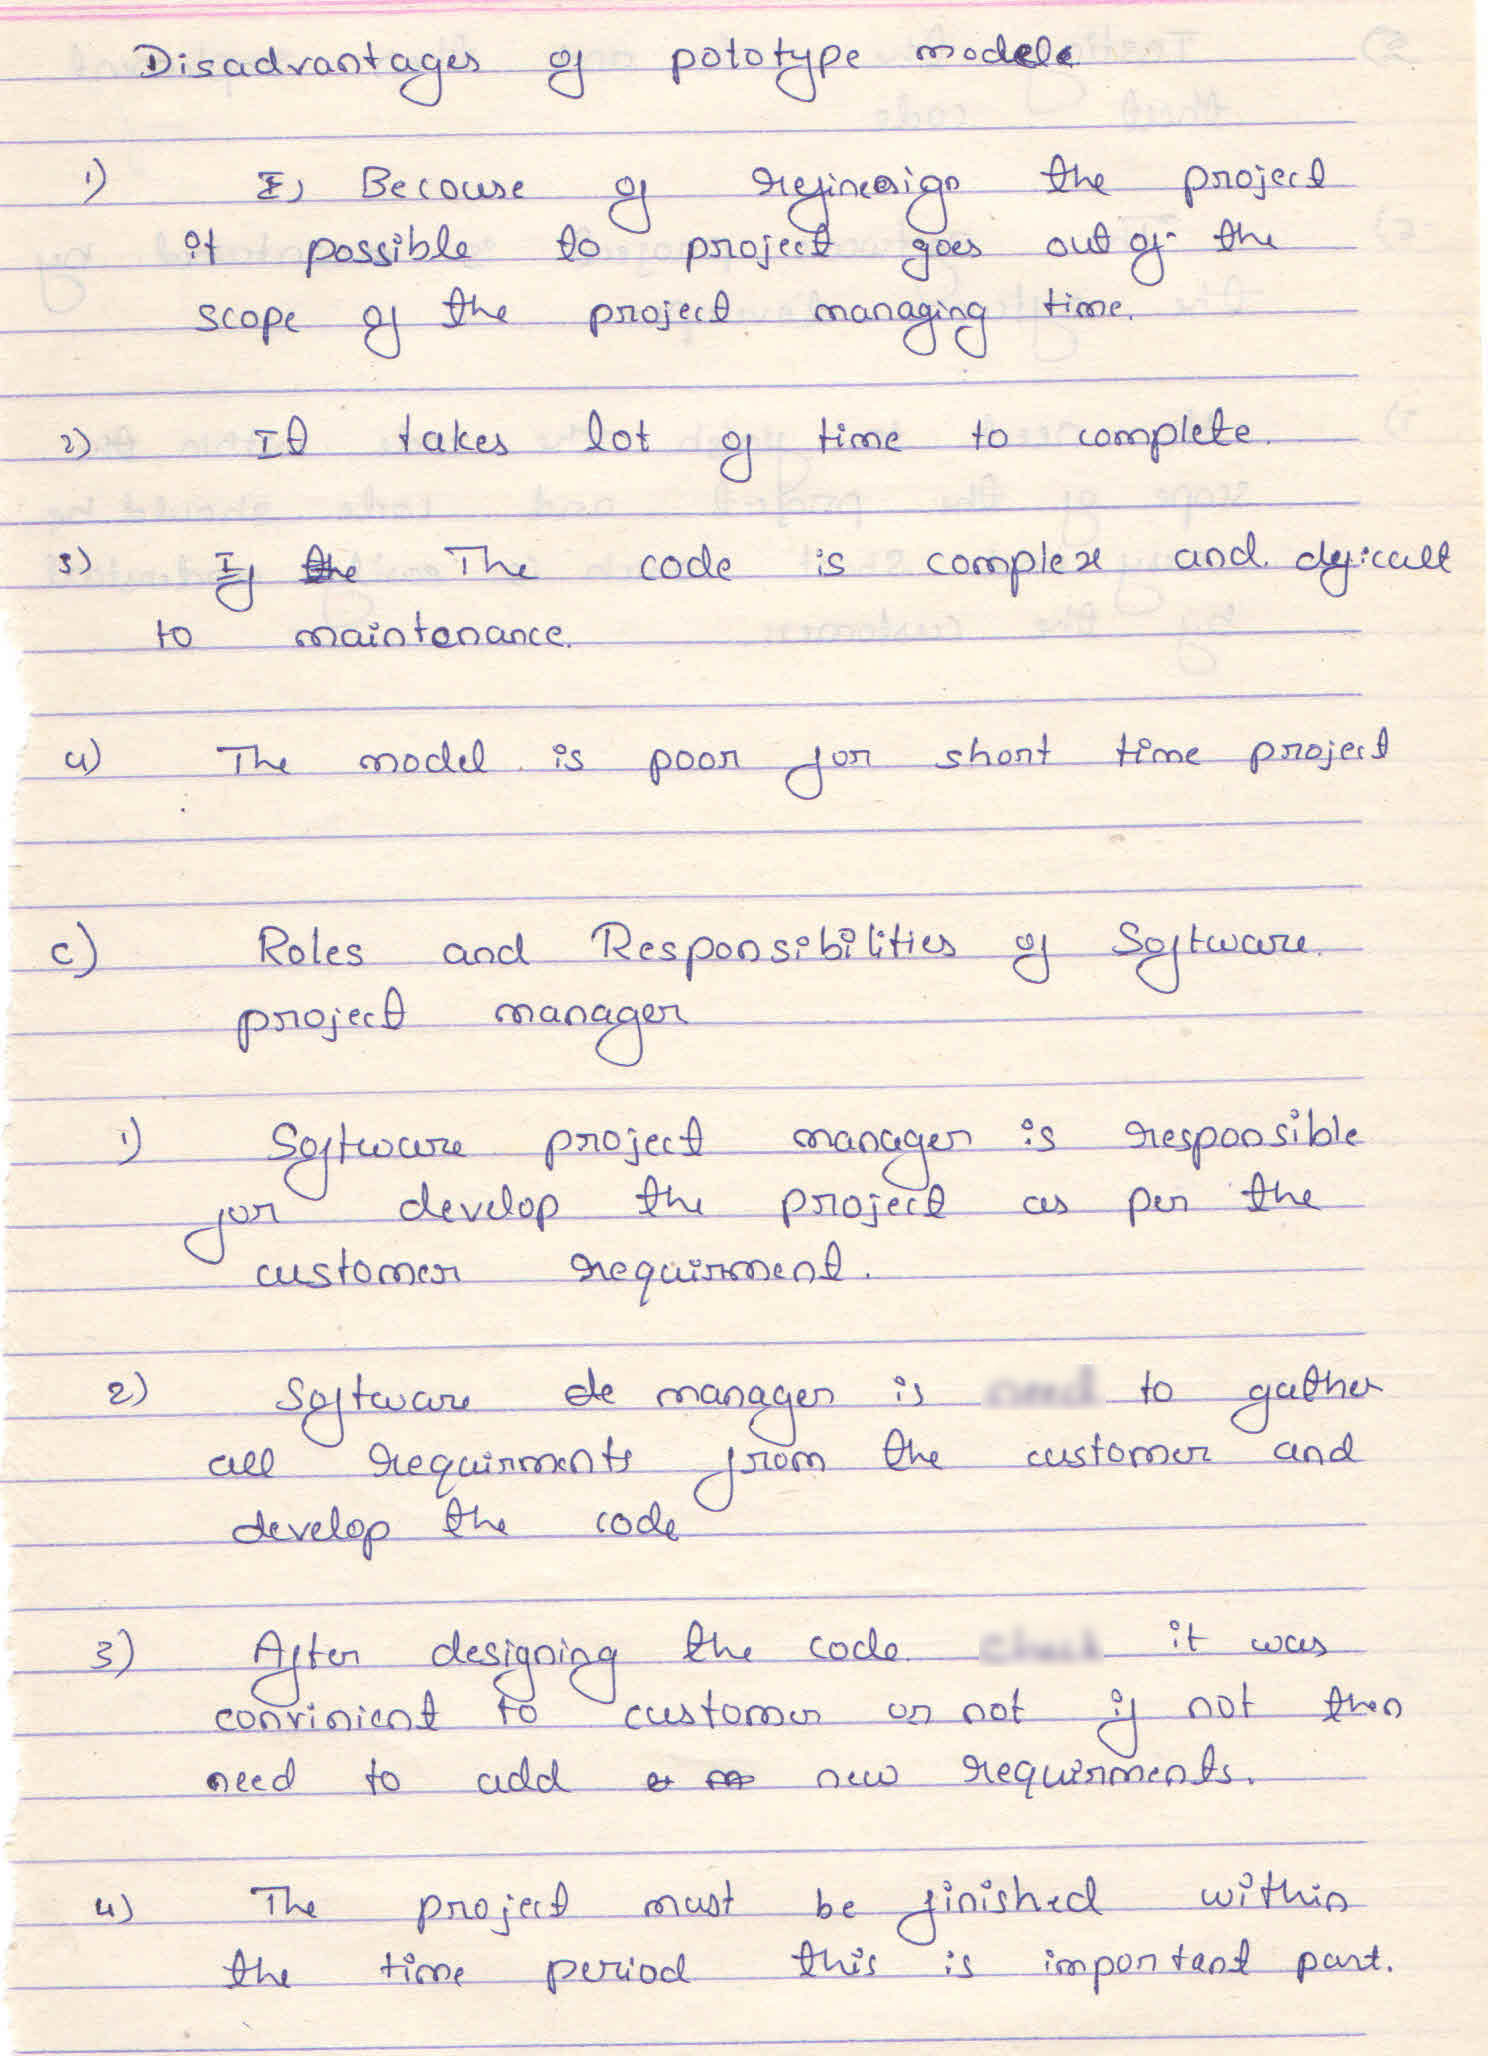 Disadvantages of pototype modele
1) Because of refinesign the project
it possible to project goes out of the
scope of the project managing time.
2) It takes lot of time to complete.
3) If the The code is complex and dificult
to maintenance.
4) The model is poor for short time project
c) Roles and Responsibilities of Software
project manager
1) Software project manager is responsible
for develop the project as per the
customer requirment.
2) Software de manager is to gather
all requirments from the customer and
develop the code
3) After designing the code it was
convinient to customer or not if not then
need to add new requirments.
4) The project must be finished within
the time period this is important part.